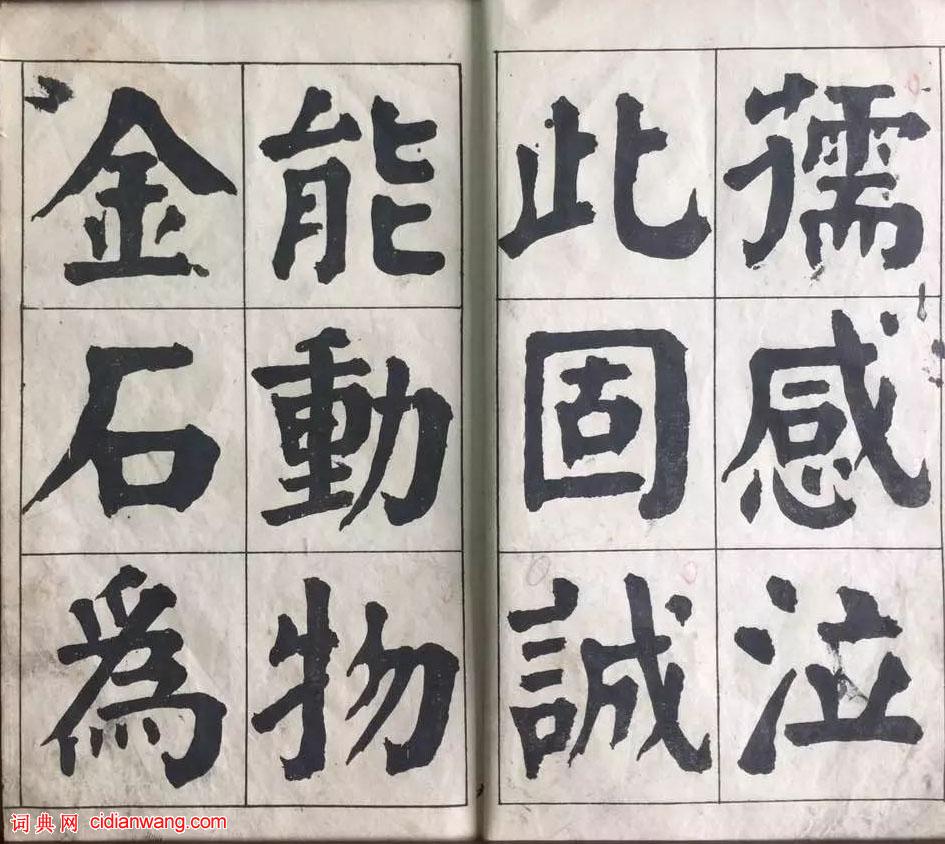 孺感泣
此固誠
能動物
金石爲
词典网 cidianwang.com